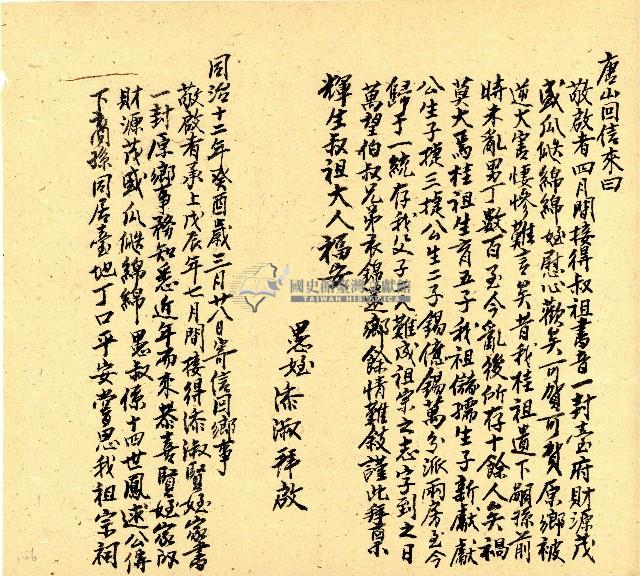 唐山回信來曰
敬啟者四月間接得叔祖書音一封臺府財源茂
盛瓜瓞綿綿姪慰心歡矣可賀可賀原鄉被
逆大害悽慘難言矣昔我桂祖遺下嗣孫前
時未亂男丁數百至今亂後所存十餘人矣禍
莫大焉桂祖生育五子我祖儲孺生子新獻獻
公生子捷三捷公生二子錫億錫萬分派兩房至今
歸于一統存我父子人難成祖宗之志字到之日
萬望伯叔兄弟衣錦還鄉餘情難敘謹此拜稟
輝生叔祖大人福安
愚姪添淑拜啟
同治十二年癸酉歲三月廿八日寄信回鄉事
敬啟者承上戊辰年七月間接得添淑賢姪家書
一封原鄉事務知悉近年而來恭喜賢姪家的
財源茂盛瓜瓞綿綿愚叔係十四世鳳逑公傳
下裔孫同居臺地丁口平安嘗思我祖宗祠
國史館臺灣文獻館
TAIWAN HISTORICA